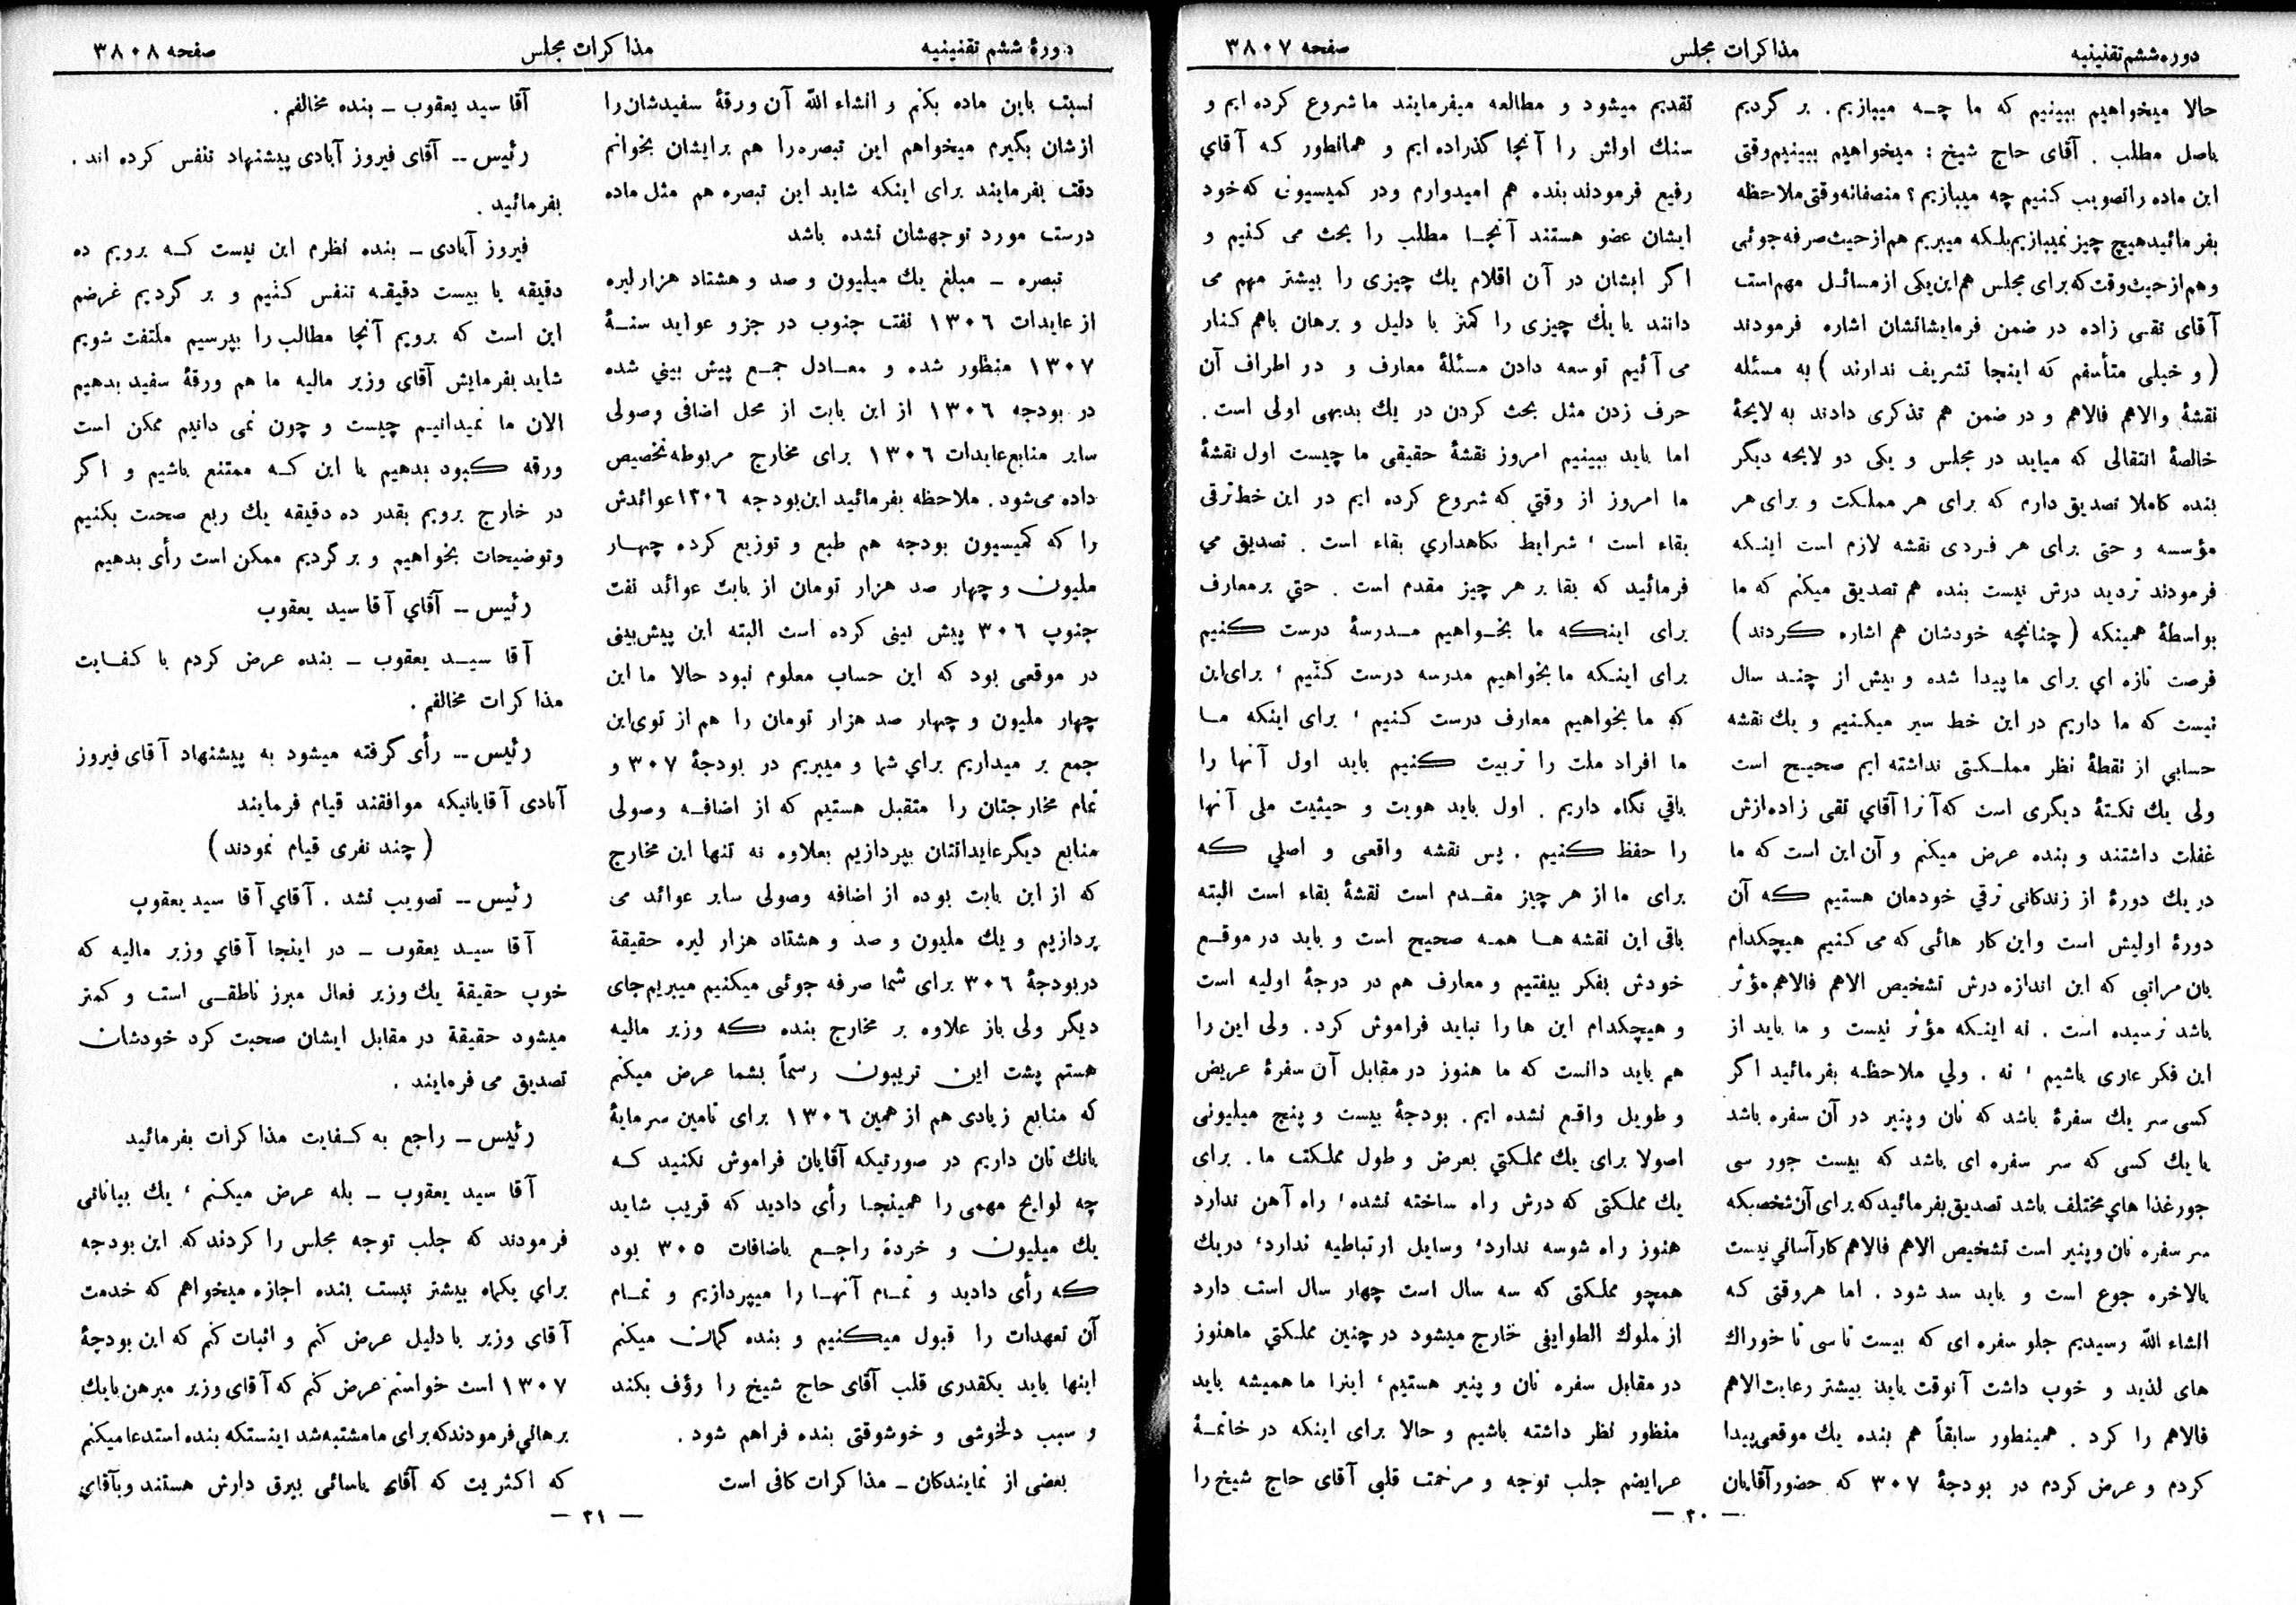 دوره ششم تقنینیه
مذاکرات مجلس
صفحه ۳۸۰۷
حالا میخواهیم ببینیم که ما چه میبازیم. بر گردیم
باصل مطلب . آقای حاج شیخ : میخواهیم ببینیم وقتی
این ماده را تصویب کنیم چه میبازیم؟ منصفانه وقتی ملاحظه
بفرمائید هیچ چیز نمیبازیم بلکه میبریم هم از حیث صرفه جوئی
و هم از حیث وقت که برای مجلس هم این یکی از مسائل مهم است
آقای تقی زاده در ضمن فرمایشاتشان اشاره فرمودند
( و خیلی متأسفم که اینجا تشریف ندارند ) به مسئله
نقشۀ والاهم فالاهم و در ضمن هم تذکری دادند به لایحۀ
خالصۀ انتقالی که میاید در مجلس و یکی دو لایحه دیگر
بنده کاملا تصدیق دارم که برای هر مملکت و برای هر
مؤسسه و حتی برای هر فردی نقشه لازم است اینکه
فرمودند تردید درش نیست بنده هم تصدیق میکنم که ما
بواسطۀ همینکه ( چنانچه خودشان هم اشاره کردند )
فرصت تازه اي برای ما پیدا شده و بیش از چند سال
نیست که ما داریم در این خط سیر میکنیم و یك نقشه
حسابي از نقطۀ نظر مملکتی نداشته ایم صحیح است
ولی یك نکتۀ دیگری است که آنرا آقای تقی زاده ازش
غفلت داشتند و بنده عرض میکنم و آن این است که ما
در یك دورۀ از زندکانی ترقي خودمان هستیم که آن
دورۀ اولیش است و این کار هائی که می کنیم هیچکدام
بان مراتبی که این اندازه درش تشخیص الاهم فالاهم مؤثر
باشد نرسیده است . نه اینکه مؤثر نیست و ما باید از
این فکر عاری باشیم ، نه . ولي ملاحظه بفرمائید اگر
کسی سر یك سفرۀ باشد که نان و پنیر در آن سفره باشد
یا یك کسی که سر سفره ای باشد که بیست جور سی
جور غذا هاي مختلف باشد تصدیق بفرمائید که برای آن شخصیکه
سر سفره نان و پنیر است تشخیص الاهم فالاهم کار آسانی نیست
بالاخره جوع است و باید سد شود . اما هر وقتی که
انشاء الله رسیدیم جلو سفره ای که بیست تا سی تا خوراك
های لذید و خوب داشت آنوقت باید بیشتر رعایت الاهم
فالاهم را کرد . همینطور سابقاً هم بنده یك موقعی پیدا
کردم و عرض کردم در بودجۀ ۳۰۷ که حضور آقایان
تقدیم میشود و مطالعه میفرمایند ما شروع کرده ایم و
سنك اولش را آنجا گذراده ایم و همانطور که آقاي
رفیع فرمودند بنده هم امیدوارم و در کمیسیون که خود
ایشان عضو هستند آنجا مطلب را بحث می کنیم و
اگر ایشان در آن اقلام یك چیزی را بیشتر مهم می
دانند یا یك چیزی را کمتر با دلیل و برهان باهم کنار
می آئیم توسعه دادن مسئلۀ معارف و در اطراف آن
حرف زدن مثل بحث کردن در یك بدیهی اولی است .
اما باید ببینیم امروز نقشۀ حقیقی ما چیست اول نقشۀ
ما امروز از وقتي که شروع کرده ایم در این خط ترقی
بقاء است ، شرایط نکاهداري بقاء است . تصدیق مي
فرمائید که بقا بر هر چیز مقدم است . حتي بر معارف
برای اینکه ما بخواهیم مدرسۀ درست کنیم
برای اینکه ما بخواهیم مدرسه درست کنیم ، برای این
که ما بخواهیم معارف درست کنیم ، برای اینکه ما
ما افراد ملت را تربیت کنیم باید اول آنها را
باقي نگاه داریم . اول باید هویت و حیثیت ملی آنها
را حفظ کنیم . پس نقشه واقعی و اصلي که
برای ما از هر چیز مقدم است نقشۀ بقاء است البته
باقی این نقشه ها همه صحیح است و باید در موقع
خودش بفکر بیفتیم و معارف هم در درجۀ اولیه است
و هیچکدام این ها را نباید فراموش کرد . ولی این را
هم باید دانست که ما هنوز در مقابل آن سفرۀ عریض
و طویل واقع نشده ایم. بودجۀ بیست و پنج میلیونی
اصولا برای یك مملکتي بعرض و طول مملکت ما . برای
یك مملکتی که درش راه ساخته نشده، راه آهن ندارد
هنوز راه شوسه ندارد، وسایل ارتباطیه ندارد، در یك
همچو مملکتی که سه سال است چهار سال است دارد
از ملوك الطوایفی خارج میشود در چنین مملکتي ما هنوز
در مقابل سفره نان و پنیر هستیم، اینرا ما همیشه باید
منظور نظر داشته باشیم و حالا برای اینکه در خاتمۀ
عرایضم جلب توجه و مرحمت قلبی آقای حاج شیخ را
— ۲۰ —
دورۀ ششم تقنینیه
مذاکرات مجلس
صفحه ۳۸۰۸
نسبت باین ماده بکنم و انشاء الله آن ورقۀ سفیدشان را
ازشان بگیرم میخواهم این تبصره را هم برایشان بخوانم
دقت بفرمایند برای اینکه شاید این تبصره هم مثل ماده
درست مورد توجهشان نشده باشد
تبصره ـ مبلغ یك میلیون و صد و هشتاد هزار لیره
از عایدات ۱۳۰۶ نفت جنوب در جزو عواید سنۀ
۱۳۰۷ منظور شده و معادل جمع پیش بیني شده
در بودجه ۱۳۰۶ از این بابت از محل اضافی وصولی
سایر منابع عایدات ۱۳۰۶ برای مخارج مربوطه تخصیص
داده می شود . ملاحظه بفرمائید این بودجه ۱۳۰۶ عوائدش
را که کمیسیون بودجه هم طبع و توزیع کرده چهار
ملیون و چهار صد هزار تومان از بابت عوائد نفت
جنوب ۳۰۶ پیش بینی کرده است البته این پیش بینی
در موقعی بود که این حساب معلوم نبود حالا ما این
چهار ملیون و چهار صد هزار تومان را هم از توی این
جمع بر میداریم براي شما و میبریم در بودجۀ ۳۰۷ و
تمام مخارجتان را متقبل هستیم که از اضافه وصولی
منابع دیگر عایداتتان بپردازیم بعلاوه نه تنها این مخارج
که از این بابت بوده از اضافه وصولی سایر عوائد می
پردازیم و یك ملیون و صد و هشتاد هزار لیره حقیقة
در بودجۀ ۳۰۶ برای شما صرفه جوئی میکنیم میبریم جای
دیگر ولی باز علاوه بر مخارج بنده که وزیر مالیه
هستم پشت این تریبون رسماً بشما عرض میکنم
که منابع زیادی هم از همین ۱۳۰۶ برای تامین سرمایۀ
بانك تان داریم در صورتیکه آقایان فراموش نکنید که
چه لوایح مهمی را همینجا رأی دادید که قریب شاید
یك میلیون و خردۀ راجع باضافات ۳۰۵ بود
که رأی دادید و تمام آنها را میپردازیم و تمام
آن تعهدات را قبول میکنیم و بنده گمان میکنم
اینها باید یکقدری قلب آقای حاج شیخ را رؤف بکند
و سبب دلخوشی و خوشوقتی بنده فراهم شود .
بعضی از نمایندکان ـ مذاکرات کافی است
آقا سید یعقوب ـ بنده مخالفم .
رئیس ـ آقای فیروز آبادی پیشنهاد تنفس کرده اند .
بفرمائید .
فیروز آبادی ـ بنده نظرم این نیست که برویم ده
دقیقه یا بیست دقیقه تنفس کنیم و بر گردیم غرضم
این است که برویم آنجا مطالب را بپرسیم ملتفت شویم
شاید بفرمایش آقای وزیر مالیه ما هم ورقۀ سفید بدهیم
الان ما نمیدانیم چیست و چون نمی دانیم ممکن است
ورقه کبود بدهیم یا این که ممتنع باشیم و اگر
در خارج برویم بقدر ده دقیقه یك ربع صحبت بکنیم
و توضیحات بخواهیم و بر گردیم ممکن است رأی بدهیم
رئیس ـ آقاي آقا سید یعقوب
آقا سید یعقوب ـ بنده عرض کردم با کفایت
مذاکرات مخالفم .
رئیس ـ رأی گرفته میشود به پیشنهاد آقای فیروز
آبادی آقایانیکه موافقند قیام فرمایند
( چند نفری قیام نمودند )
رئیس ـ تصویب نشد . آقاي آقا سید یعقوب
آقا سید یعقوب ـ در اینجا آقاي وزیر مالیه که
خوب حقیقة یك وزیر فعال مبرز ناطقی است و کمتر
میشود حقیقة در مقابل ایشان صحبت کرد خودشان
تصدیق می فرمایند .
رئیس ـ راجع به کفایت مذاکرات بفرمائید
آقا سید یعقوب ـ بله عرض میکنم ، یك بیاناتی
فرمودند که جلب توجه مجلس را کردند که این بودجه
براي یکماه بیشتر نیست بنده اجازه میخواهم که خدمت
آقای وزیر با دلیل عرض کنم و اثبات کنم که این بودجۀ
۱۳۰۷ است خواستم عرض کنم که آقای وزیر مبرهن با یك
برهاني فرمودند که برای ما مشتبه شد اینستکه بنده استدعا میکنم
که اکثریت که آقای یاسائی بیرق دارش هستند و بآقای
— ۲۱ —